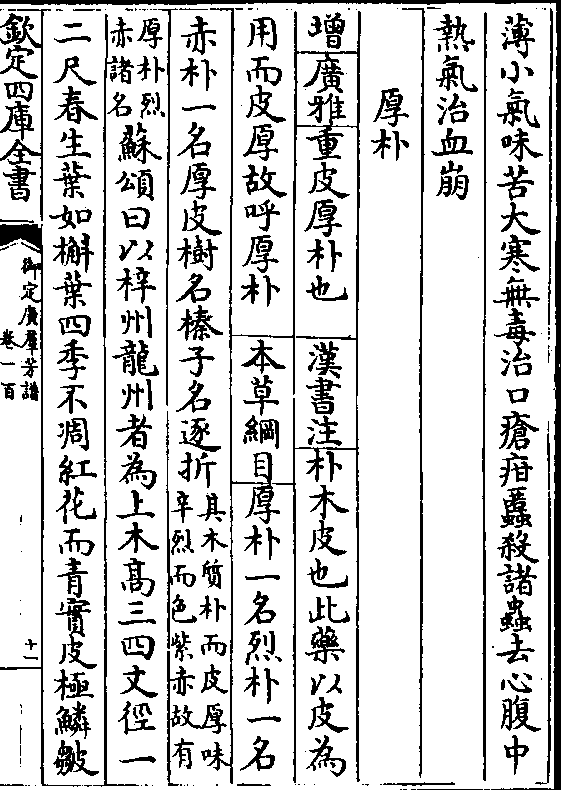 薄小氣味苦大寒無毒治口瘡疳䘌殺諸蟲去心腹中
熱氣治血崩
厚朴
增廣雅重皮厚朴也 漢書注朴木皮也此藥以皮為
用而皮厚故呼厚朴 本草綱目厚朴一名烈朴一名
赤朴一名厚皮樹名榛子名逐折其木質朴而皮厚味辛烈而色紫赤故有
厚朴烈赤諸名蘇頌曰以梓州龍州者為上木髙三四丈徑一
二尺春生葉如槲葉四季不凋紅花而青實皮極鱗皺
欽定四庫全書
御定廣羣芳譜
卷一百
十一